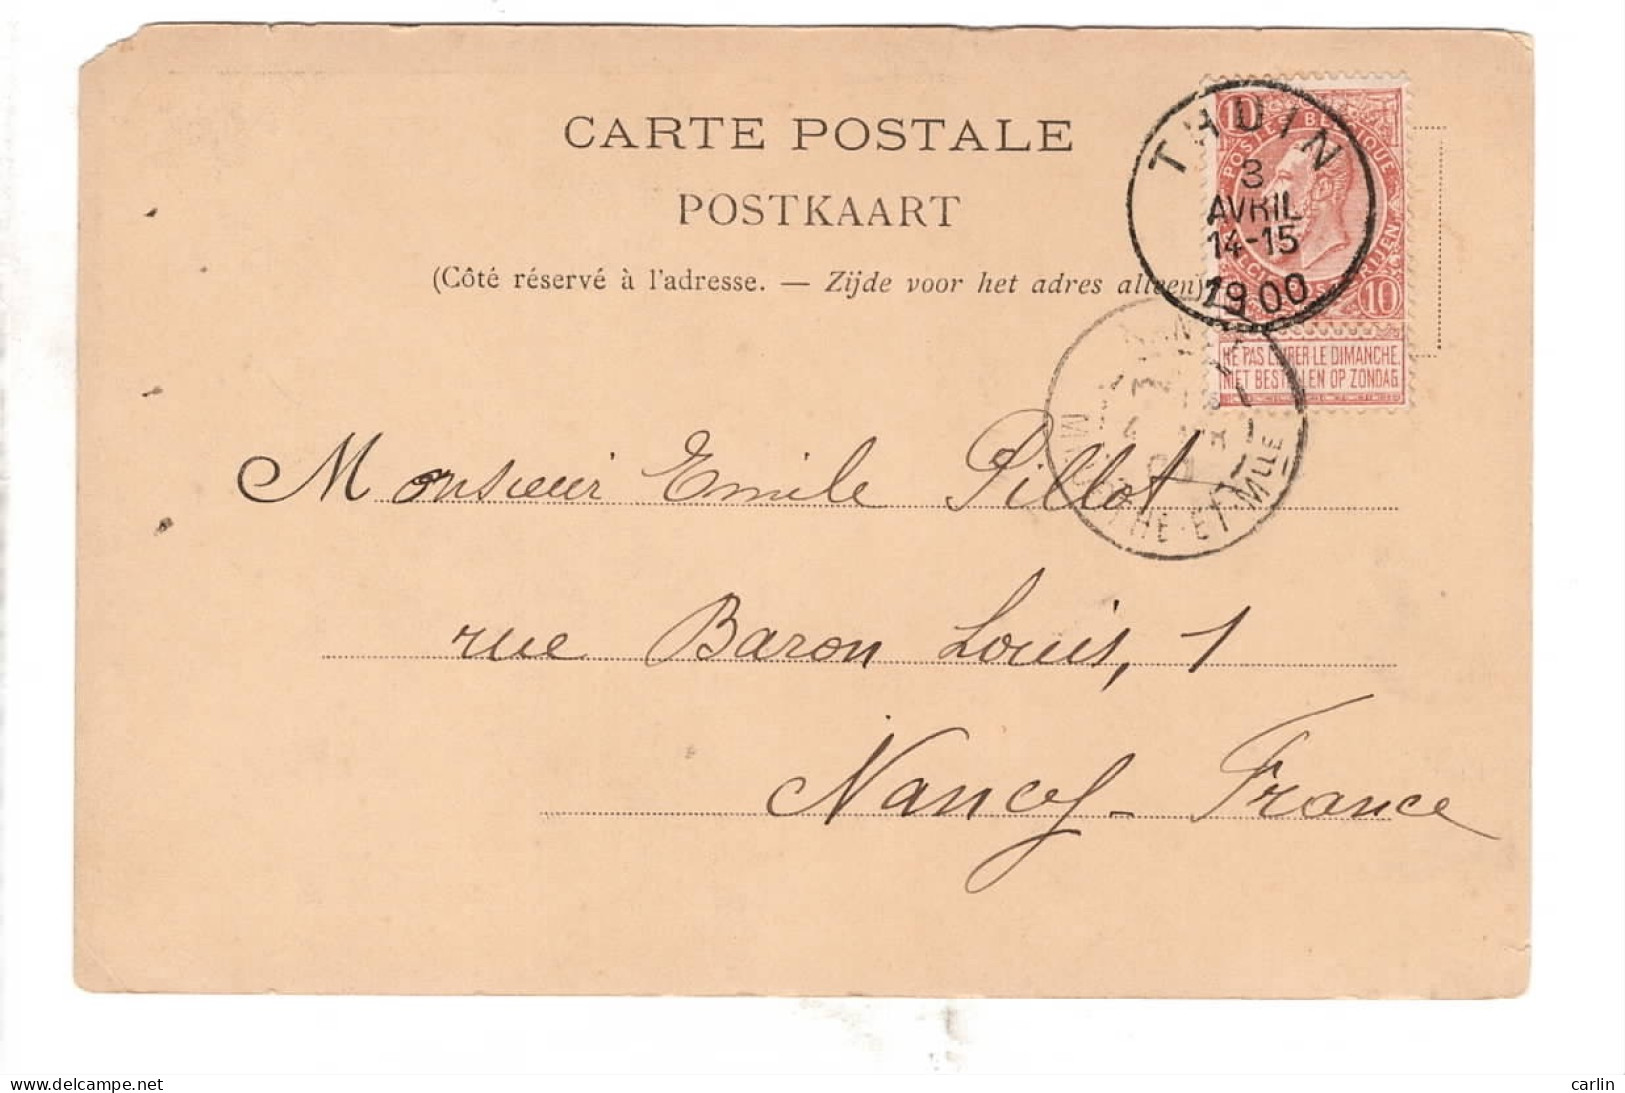 CARTE POSTALE
POSTKAART
(Côté réservé à l'adresse. — Zijde voor het adres alleen)
THUIN
3
AVRIL
14-15
1900
10
POSTES BELGIQUE
10
NE PAS LIVRER LE DIMANCHE
NIET BESTELLEN OP ZONDAG
4
ET-MLLE
Monsieur Emile Pillot
rue Baron Louis, 1
Nancy - France
delcampe.net
carlin